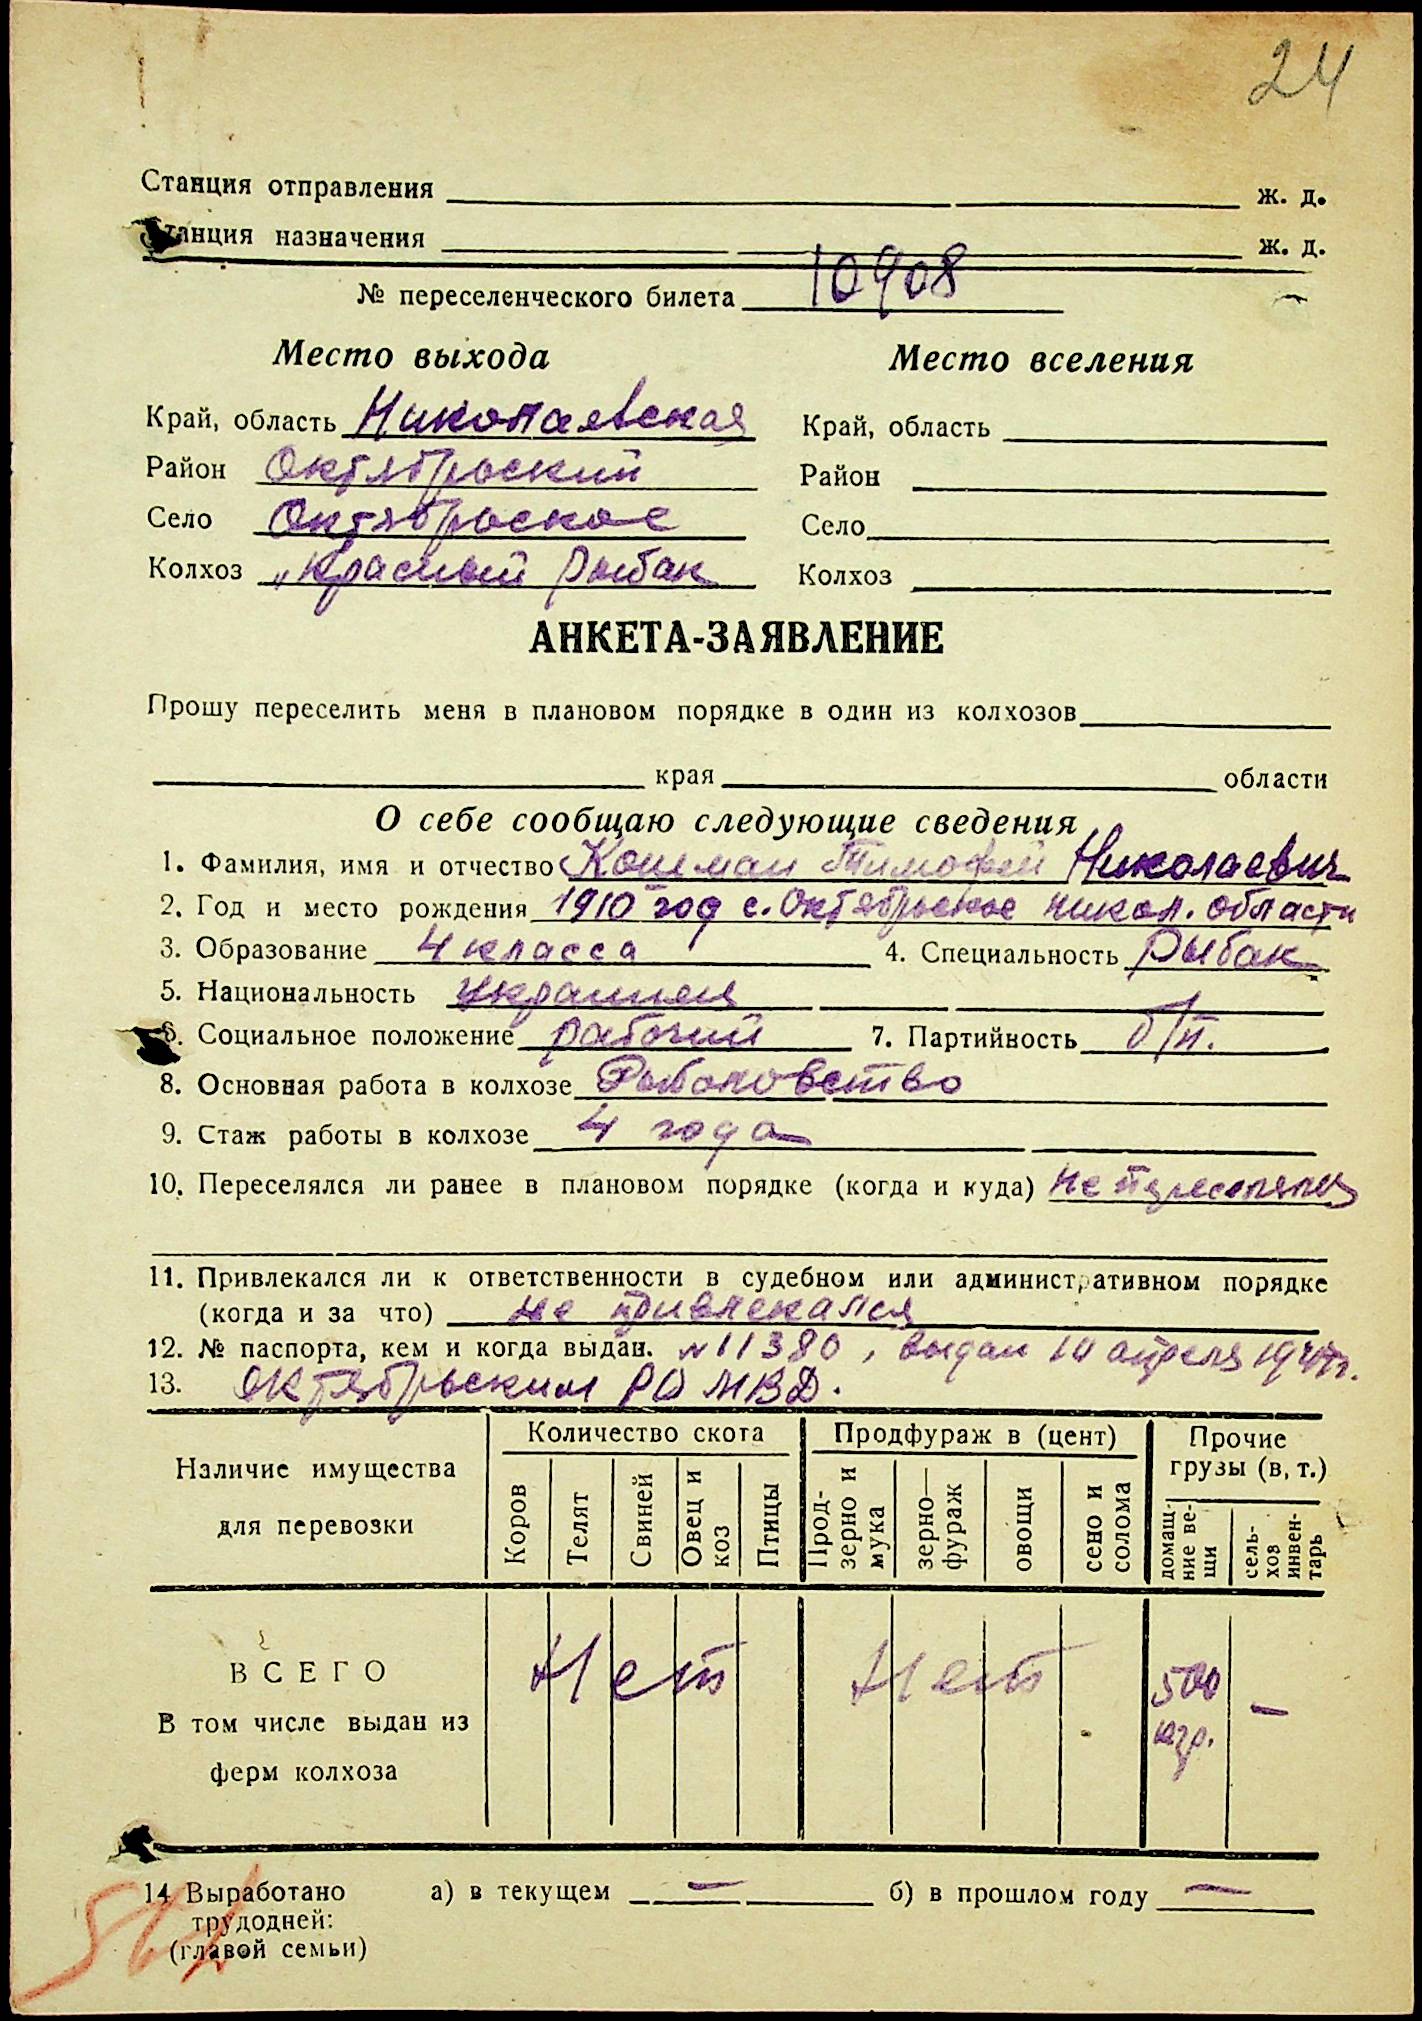 24
Станция отправления ж. д.
Станция назначения ж. д.
№ переселенческого билета 10908
Место выхода Место вселения
Край, область Николаевская Край, область
Район Октябрьский Район
Село Октябрьское Село
Колхоз „Красный рыбак Колхоз
АНКЕТА-ЗАЯВЛЕНИЕ
Прошу переселить меня в плановом порядке в один из колхозов
края области
О себе сообщаю следующие сведения
1. Фамилия, имя и отчество Кошман Тимофей Николаевич
2. Год и место рождения 1910 год с. Октябрьское Никол. области
3. Образование 4 класса 4. Специальность Рыбак
5. Национальность украинец
6. Социальное положение рабочий 7. Партийность б/п.
8. Основная работа в колхозе Рыбаковство
9. Стаж работы в колхозе 4 года
10. Переселялся ли ранее в плановом порядке (когда и куда) не переселялся
11. Привлекался ли к ответственности в судебном или административном порядке
(когда и за что) не привлекался
12. № паспорта, кем и когда выдан. №11380, выдан 10 апреля
13. Октябрьским РО МВД.
Наличие имущества для перевозки
Количество скота Продфураж в (цент) Прочие грузы (в, т.)
Коров Телят Свиней Овец и коз Птицы Прод-зерно и мука зерно—фураж овощи сено и солома домашние ве-щи сель-хоз инвен-тарь
ВСЕГО Нет Нет 500 кгр. —
В том числе выдан из
ферм колхоза
14 Выработано а) в текущем — б) в прошлом году —
трудодней:
(главой семьи)